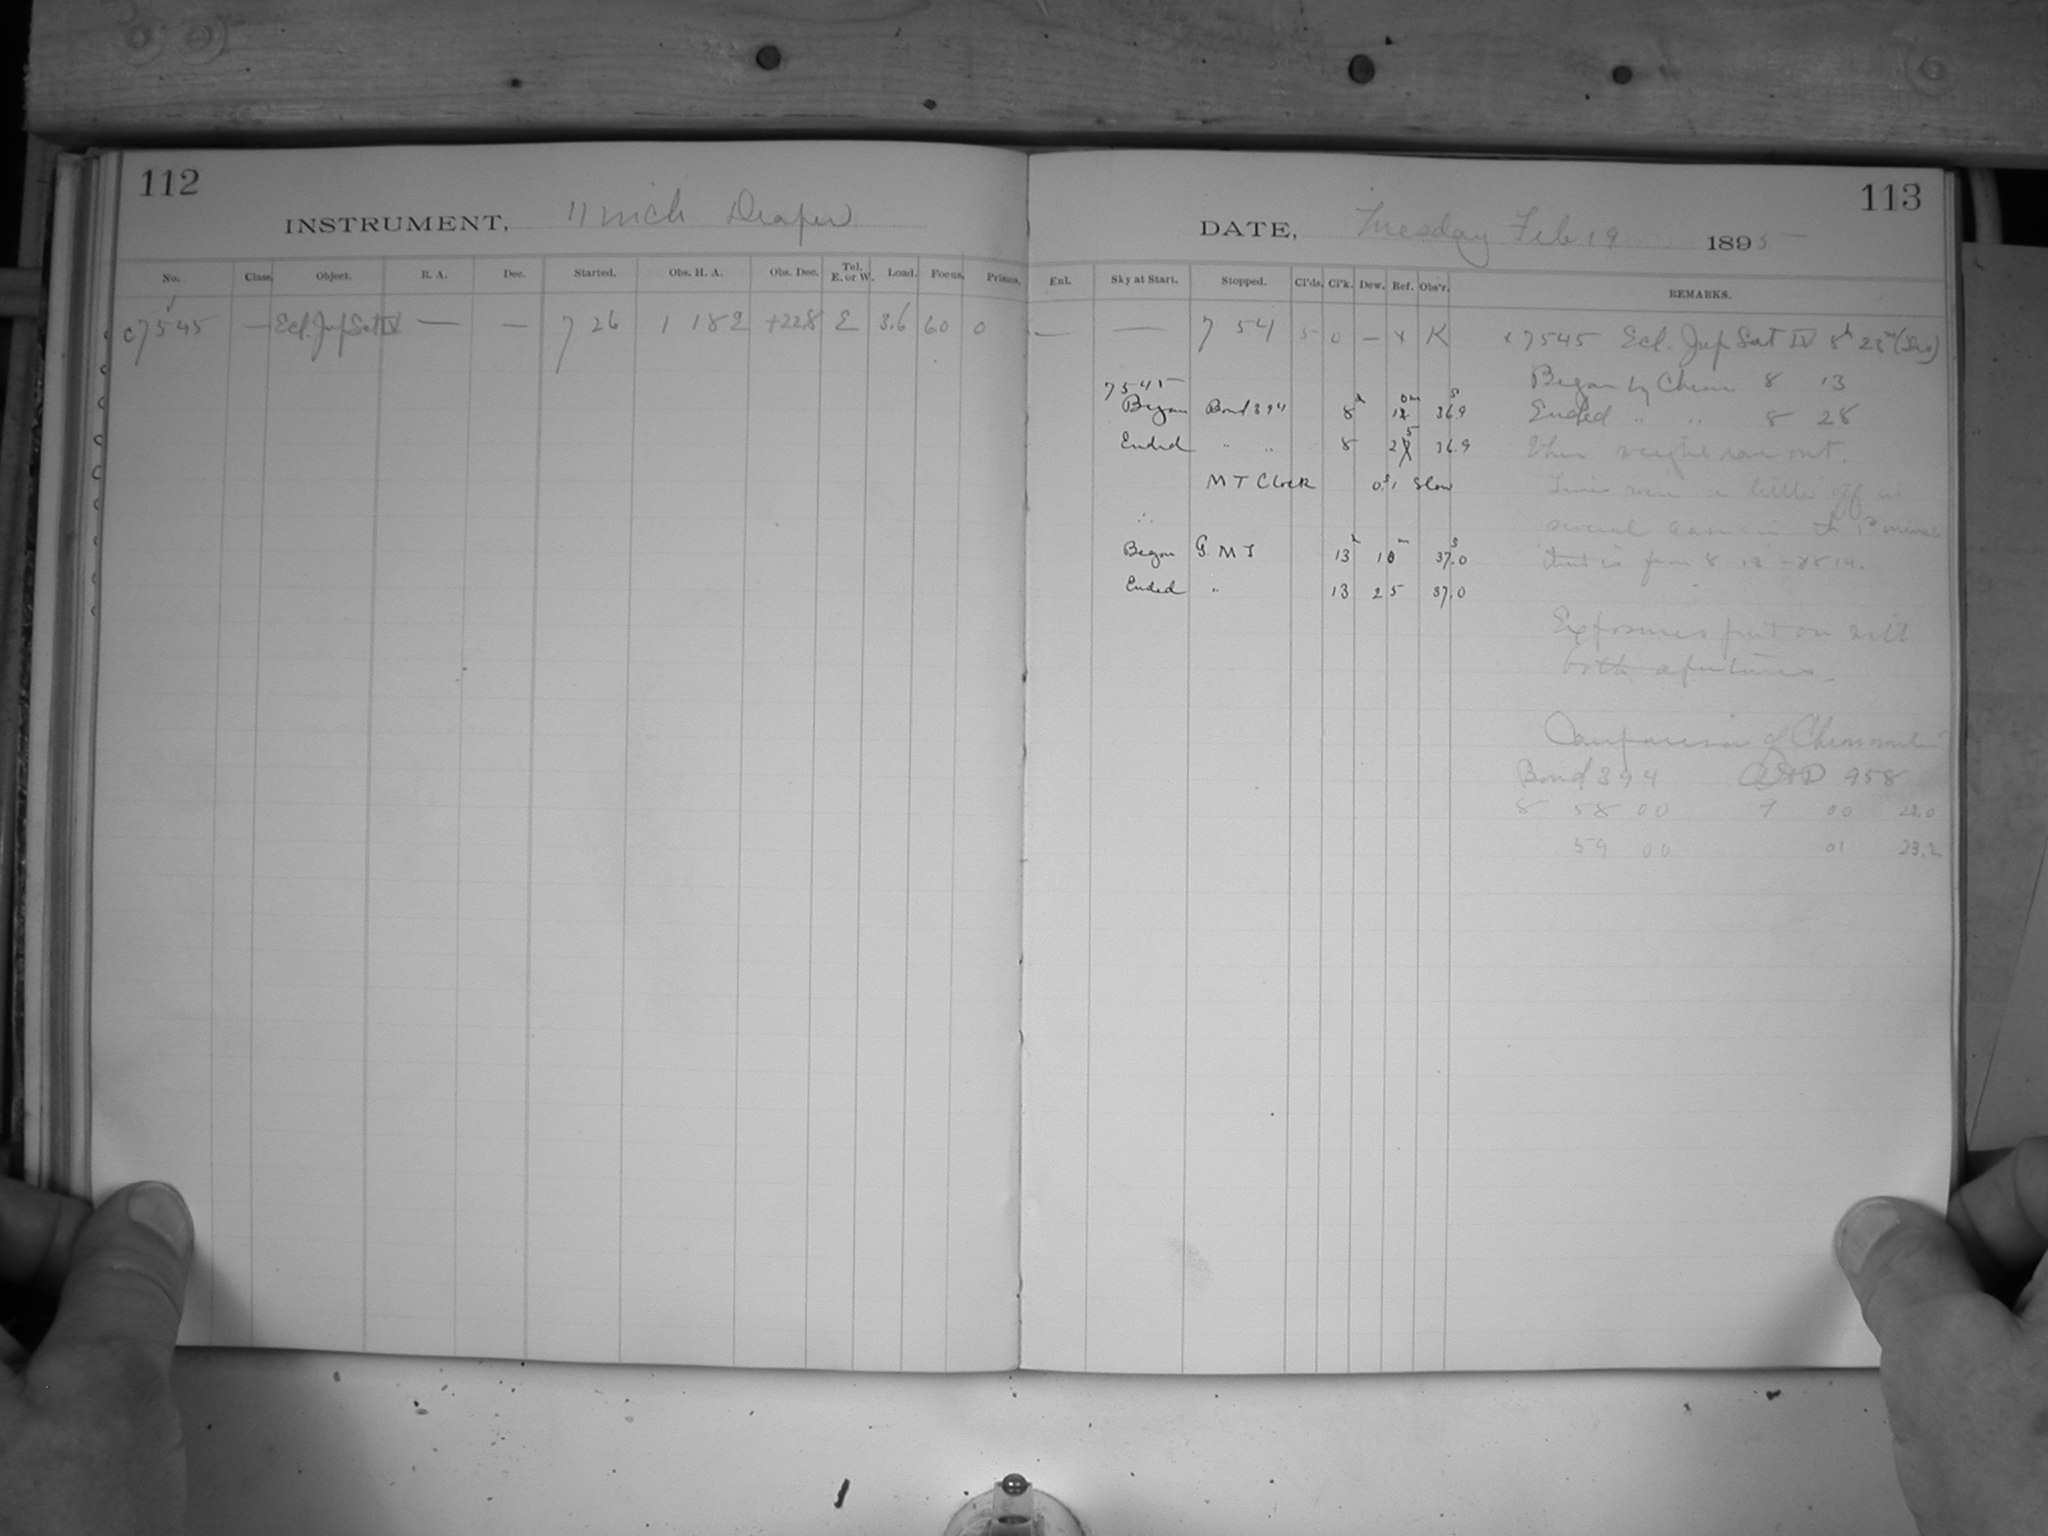 112
INSTRUMENT, 11 inch Draper
No. Class. Object. R. A. Dec. Started. Obs. H. A. Obs. Dec. Tel. E. or W. Load. Focus. Prisms.
c7545 — Ecl. Jup Sat IV — — 7 26 1 182 +22.8 E 3.6 60 0
113
DATE, Tuesday Feb 19 1895
Enl. Sky at Start. Stopped. Cl'ds. Cl'k. Dew. Ref. Obs'r. REMARKS.
— — 7 54 5 0 — x K
7545
Began Bond 394 8h 10m 36.9s
Ended " " 8 25 36.9
M T Clock 0.s1 Slow
∴
Began G. M T 13h 10m 37.0s
Ended " 13 25 37.0
c7545 Ecl. Jup Sat IV 8h 23m
Began by Chron 8 13
Ended " " 8 28
then weights ran out.
Times were a little off in
several cases in the 1st minute
that is from 8 13 - 8 14.
Exposures put on with
both apertures.
Comparison of Chronometer
Bond 394 958
8 58 00 9 00 23.0
59 00 01 23.2